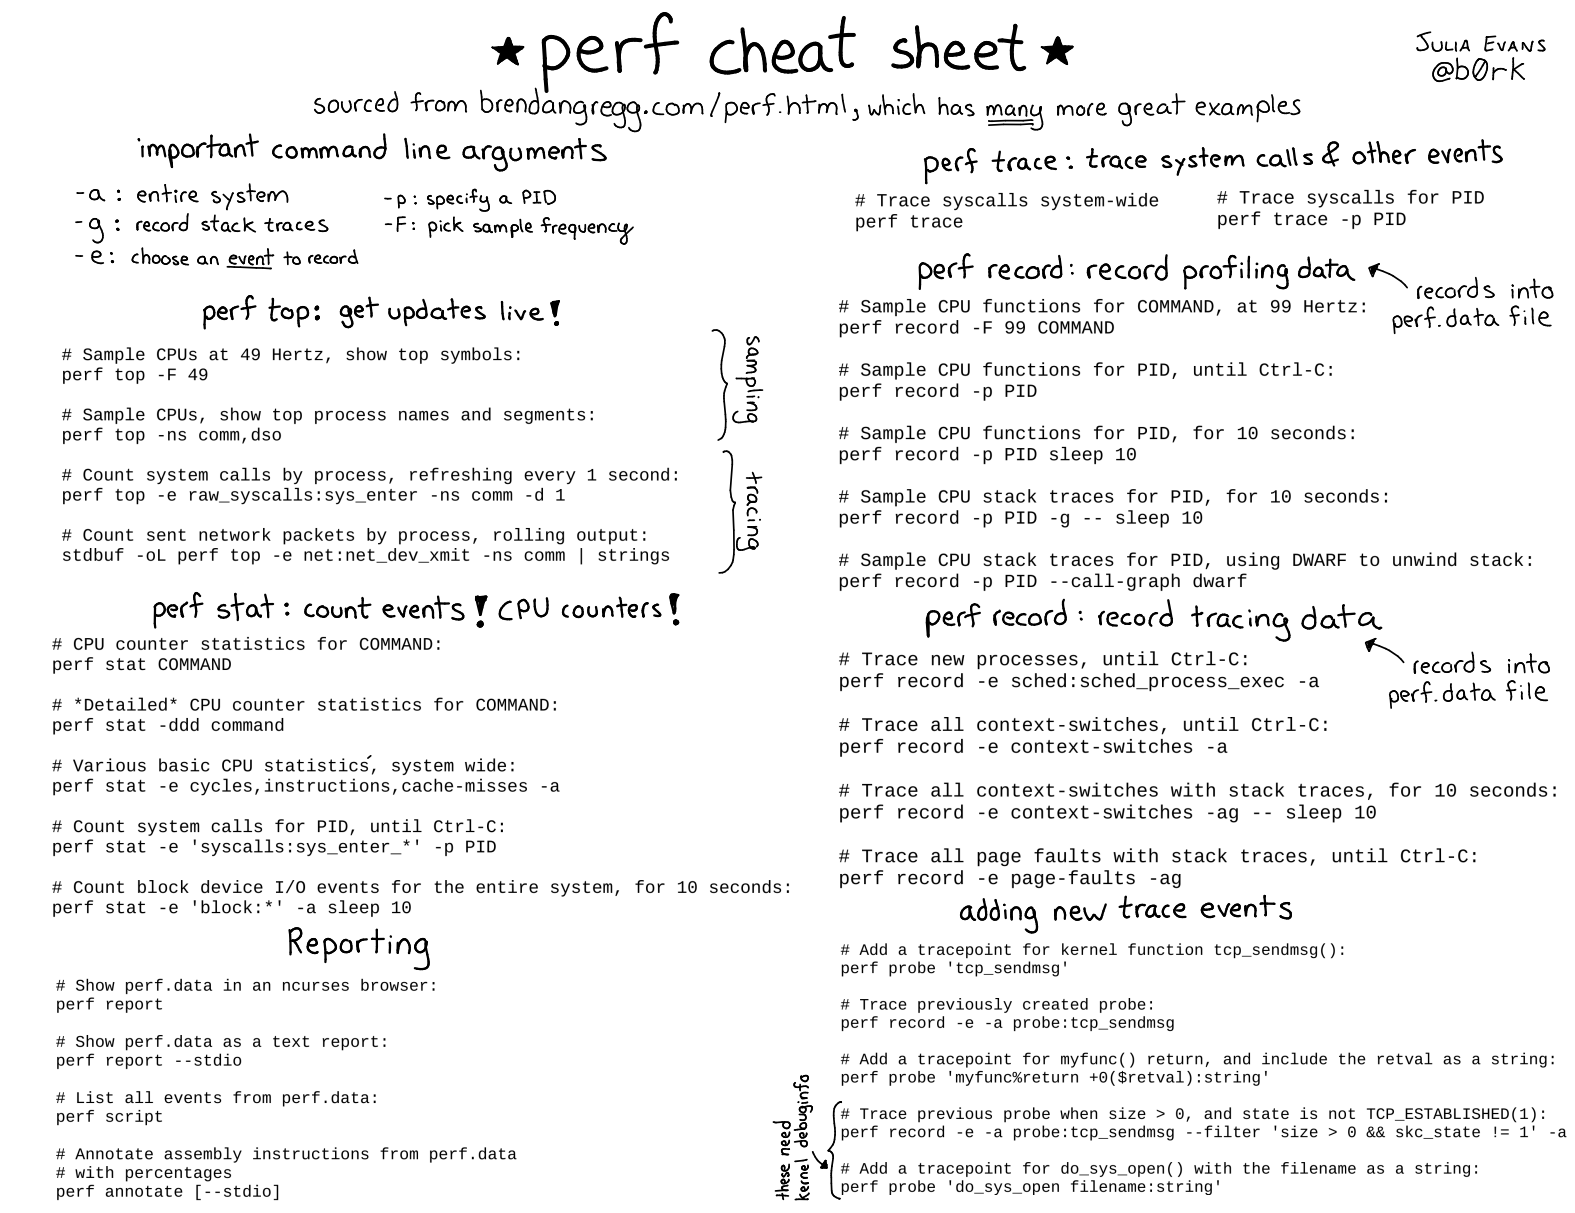 ★ perf cheat sheet ★
JULIA EVANS
@b0rk
sourced from brendangregg.com/perf.html, which has many more great examples
important command line arguments
-a : entire system
-p : specify a PID
-g : record stack traces
-F : pick sample frequency
-e : choose an event to record
perf top: get updates live!
# Sample CPUs at 49 Hertz, show top symbols:
perf top -F 49
# Sample CPUs, show top process names and segments:
perf top -ns comm,dso
sampling
# Count system calls by process, refreshing every 1 second:
perf top -e raw_syscalls:sys_enter -ns comm -d 1
# Count sent network packets by process, rolling output:
stdbuf -oL perf top -e net:net_dev_xmit -ns comm | strings
tracing
perf stat : count events! CPU counters!
# CPU counter statistics for COMMAND:
perf stat COMMAND
# *Detailed* CPU counter statistics for COMMAND:
perf stat -ddd command
# Various basic CPU statistics, system wide:
perf stat -e cycles,instructions,cache-misses -a
# Count system calls for PID, until Ctrl-C:
perf stat -e 'syscalls:sys_enter_*' -p PID
# Count block device I/O events for the entire system, for 10 seconds:
perf stat -e 'block:*' -a sleep 10
Reporting
# Show perf.data in an ncurses browser:
perf report
# Show perf.data as a text report:
perf report --stdio
# List all events from perf.data:
perf script
# Annotate assembly instructions from perf.data
# with percentages
perf annotate [--stdio]
perf trace : trace system calls & other events
# Trace syscalls system-wide
perf trace
# Trace syscalls for PID
perf trace -p PID
perf record : record profiling data
records into
perf.data file
# Sample CPU functions for COMMAND, at 99 Hertz:
perf record -F 99 COMMAND
# Sample CPU functions for PID, until Ctrl-C:
perf record -p PID
# Sample CPU functions for PID, for 10 seconds:
perf record -p PID sleep 10
# Sample CPU stack traces for PID, for 10 seconds:
perf record -p PID -g -- sleep 10
# Sample CPU stack traces for PID, using DWARF to unwind stack:
perf record -p PID --call-graph dwarf
perf record : record tracing data
records into
perf.data file
# Trace new processes, until Ctrl-C:
perf record -e sched:sched_process_exec -a
# Trace all context-switches, until Ctrl-C:
perf record -e context-switches -a
# Trace all context-switches with stack traces, for 10 seconds:
perf record -e context-switches -ag -- sleep 10
# Trace all page faults with stack traces, until Ctrl-C:
perf record -e page-faults -ag
adding new trace events
# Add a tracepoint for kernel function tcp_sendmsg():
perf probe 'tcp_sendmsg'
# Trace previously created probe:
perf record -e -a probe:tcp_sendmsg
# Add a tracepoint for myfunc() return, and include the retval as a string:
perf probe 'myfunc%return +0($retval):string'
these need
kernel debuginfo
# Trace previous probe when size > 0, and state is not TCP_ESTABLISHED(1):
perf record -e -a probe:tcp_sendmsg --filter 'size > 0 && skc_state != 1' -a
# Add a tracepoint for do_sys_open() with the filename as a string:
perf probe 'do_sys_open filename:string'